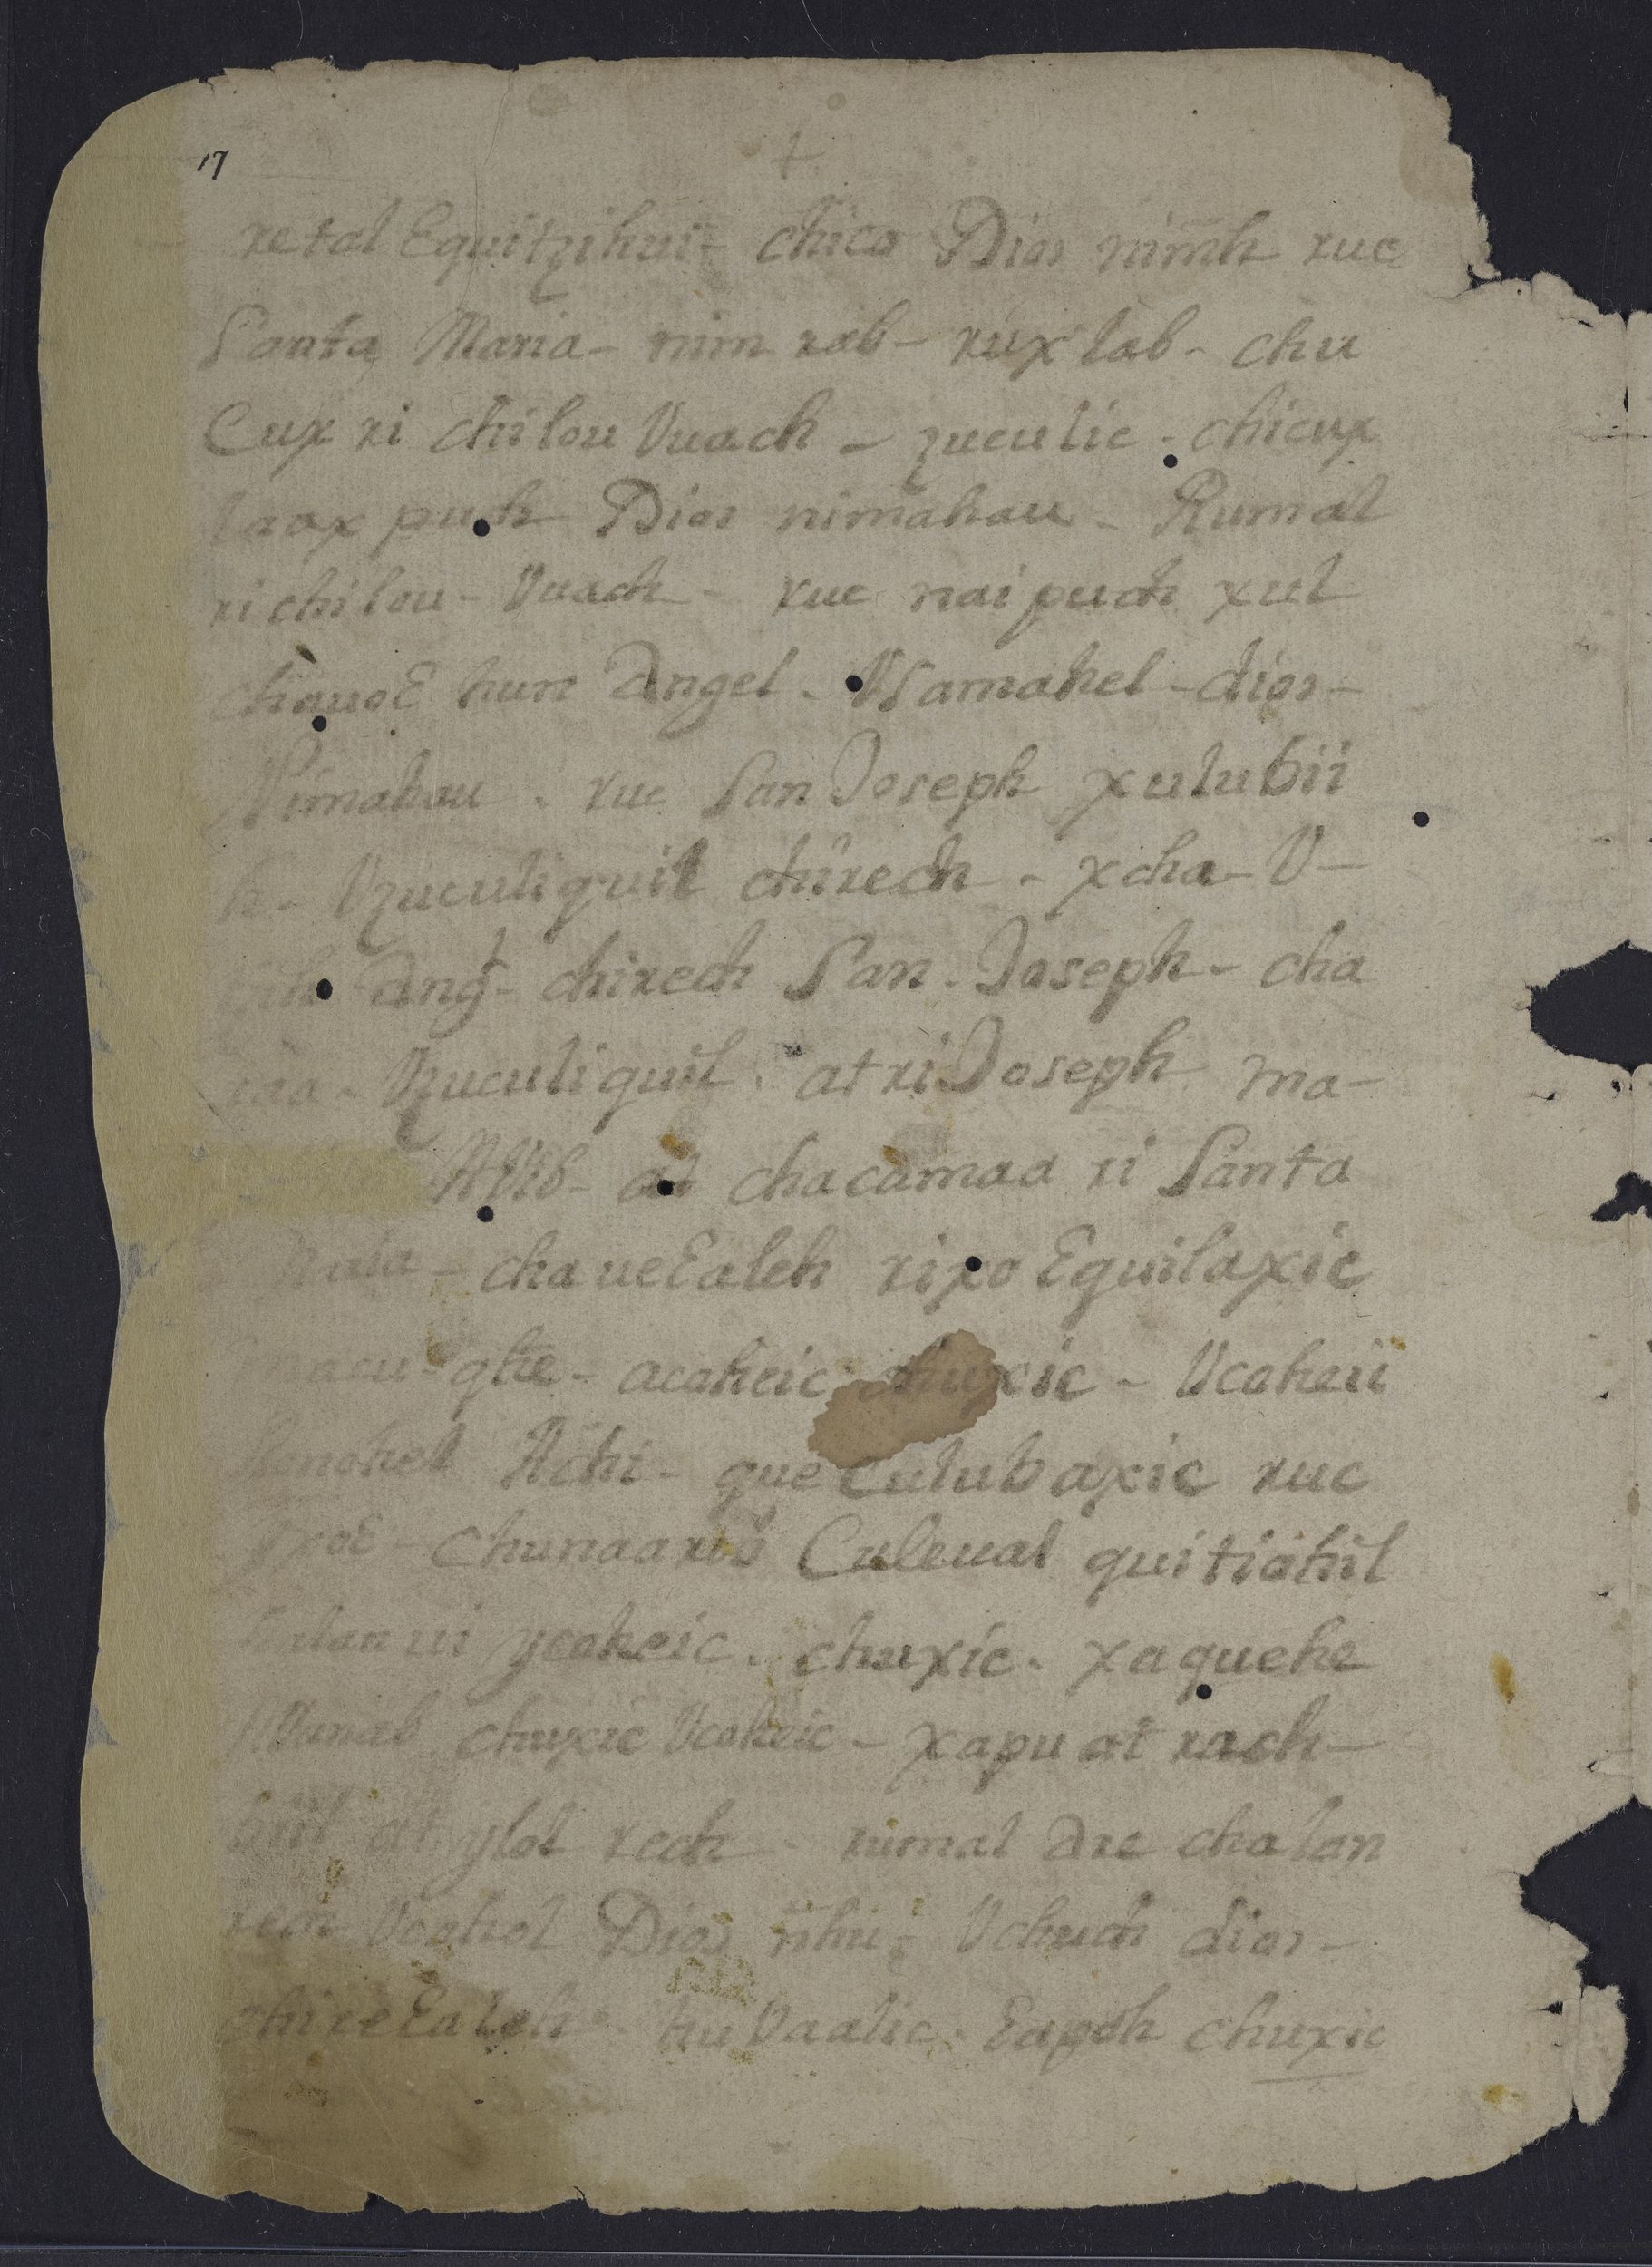 17
+
retal Equitzihui - chico Dios nimh ruc
Santa Maria - nim rab - ruxlab - chu
Cux ri chilou Vuach - zuculic - chicux
laax puch Dios nimahau - Rumal
ri chilou - Vuach - ruc naipuch xul
chauoE hun Angel - VSamahel - dios -
Nimahau - ruc San Joseph xulubii
h - Vzuculiquil chirech - xcha - V -
Ang̃l - chirech San - Joseph - cha
Vzuculiquil - at ri Joseph ma -
AVib - at chacamaa ri Santa
cha ueEaleh rixoEquilaxic
qhe - acoheic chuxic - Vcoheic
Ronohel Achi - que Culubaxic ruc
yxoE - chunaarib Culeual quitiohil
ui ycoheic - chuxic - xaquehe
chuxic Vcoheic - xapu at rach -
biil at ylol rech - rumal Are chalan
rech Vcahol Dios Vchuch dios -
chireEaleh - hu Vaalic - Eapoh chuxic